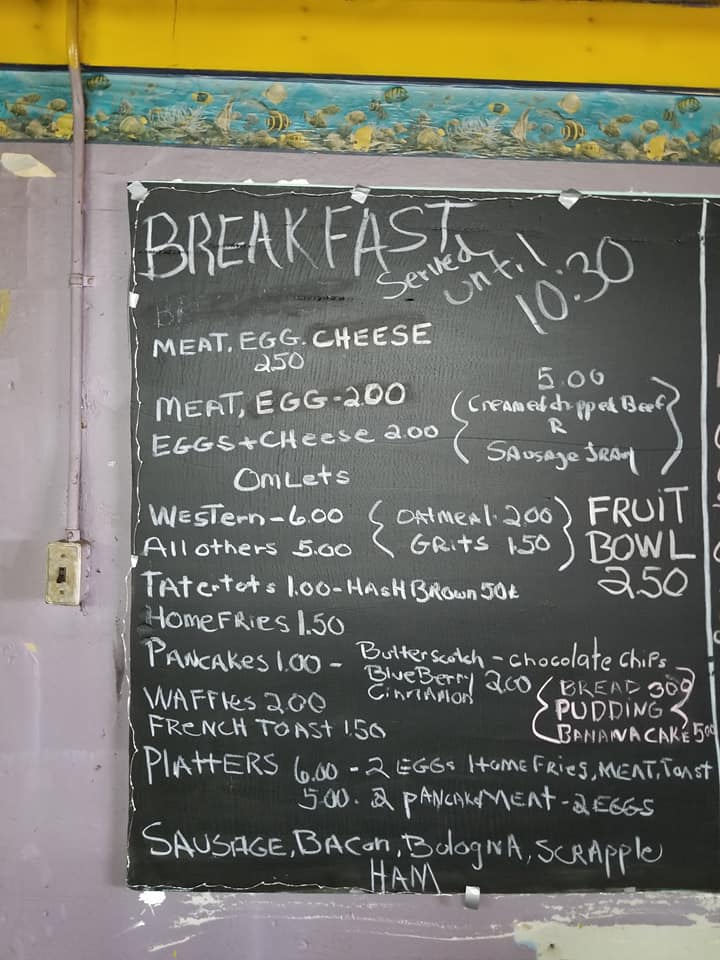 BREAKFAST
Served
until
10:30
MEAT, EGG. CHEESE
250
MEAT, EGG-200
EGGS+CHeese 200
5.00
Creamed chipped Beef
R
SAusage GRAvy
OmLets
WesTern-6.00
All others 5.00
OATmeal. 200
GRiTs 1.50
FRUiT
BOWL
2.50
TATertots 1.00-HAsH BRown 50¢
HomeFRies 1.50
PANCAKes 1.00 - Butterscotch - chocolate chips
BlueBerry 200
CinnAmon
WAFFles 2.00
FRENCH TOAST 1.50
BREAD 300
PUDDING
BANANA CAKE 500
PlATTERS 6.00 - 2 EGGs HomeFries, MEAT, ToAst
5.00. 2 pANcAke MEAT - 2 EGGS
SAUSAGE, BAcon, BologNA, SCRApple
HAM